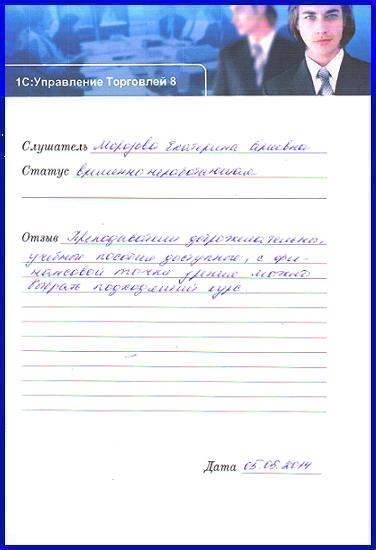 1С:Управление Торговлей 8
Слушатель Морозова Екатерина
Статус временно неработающая
Отзыв Преподаватели доброжелательны,
учебные пособия доступные, с фи-
нансовой точки зрения можно
выбрать подходящий курс.
Дата 05.05.2014